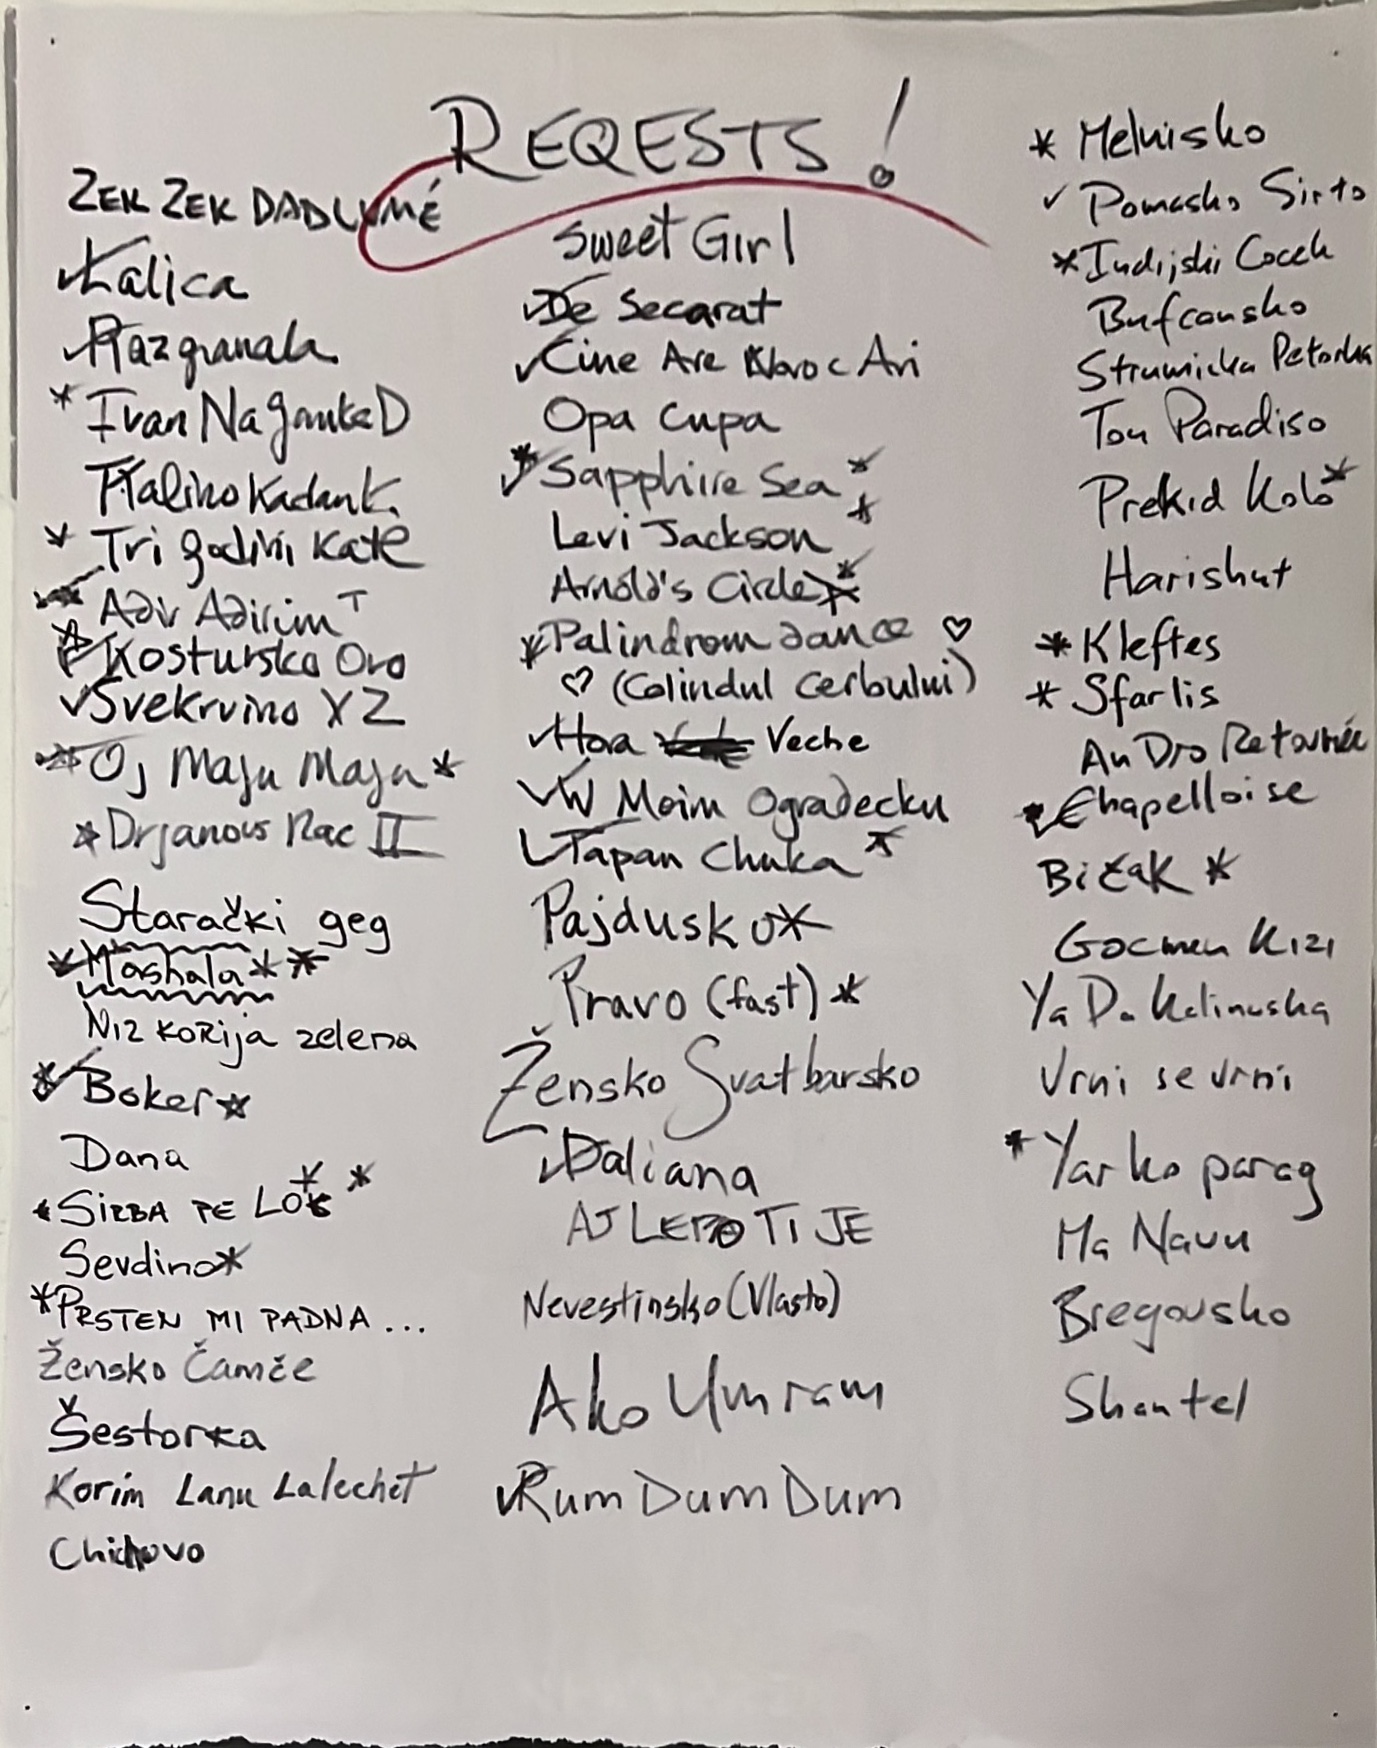 REQESTS!
ZEK ZEK DADLUMÉ
Lalica
Razgranala
Ivan Na
Kadank.
Tri godini Kate
Adir Adirim
Kostursko Oro
Svekrvino X2
Oj Maju Maju
Drjanovs Rac II
Starački geg
Mashala
Niz korija zelena
Boker
Dana
SIRBA PE LOC
Sevdino
PRSTEN MI PADNA...
Žensko Čamče
Šestorka
Korim Lanu Lalechet
Chichovo
Sweet Girl
De Secarat
Cine Are Noroc Ari
Opa Cupa
Sapphire Sea
Levi Jackson
Arnold's Circle
Palindrom dance
(Colindul Cerbului)
Hora Veche
W Moim Ogradecku
Tapan Chuka
Pajdusko
Pravo (fast)
Žensko Svatbarsko
Daliana
AJ LEPO TI JE
Nevestinsko (Vlasto)
Ako Umram
Rum Dum Dum
Melnisko
Pomasko Sirto
Indijski Cocek
Bufcansko
Strumicka Petorka
Tou Paradiso
Prekid Kolo
Harishut
Kleftes
Sfarlis
An Dro Retournée
Chapelloise
Bičak
Gocmen Kizi
Ya Da Kalinuska
Vrni se vrni
Yarko parag
Ma Navu
Bregovsko
Shantel